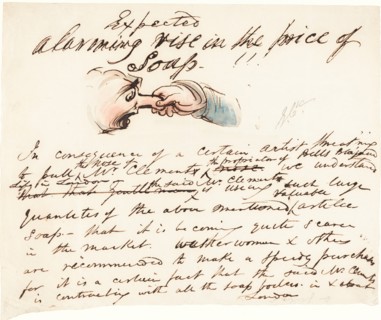 Expected
alarming rise in the price of
Soap !!!
In consequence of a certain artist threatening
to pull Mr Clements the nose the proprietor of Bell's
Life in London we understand
that the said Mr Clements is using such large
quantities of the above mentioned valuable article
Soap - that it is becoming quite scarce
in the market. washerwomen & others
are recommended to make a speedy purchase
for it is a certain fact that the said Mr Clements
is contracting with all the soap boilers in & about
London